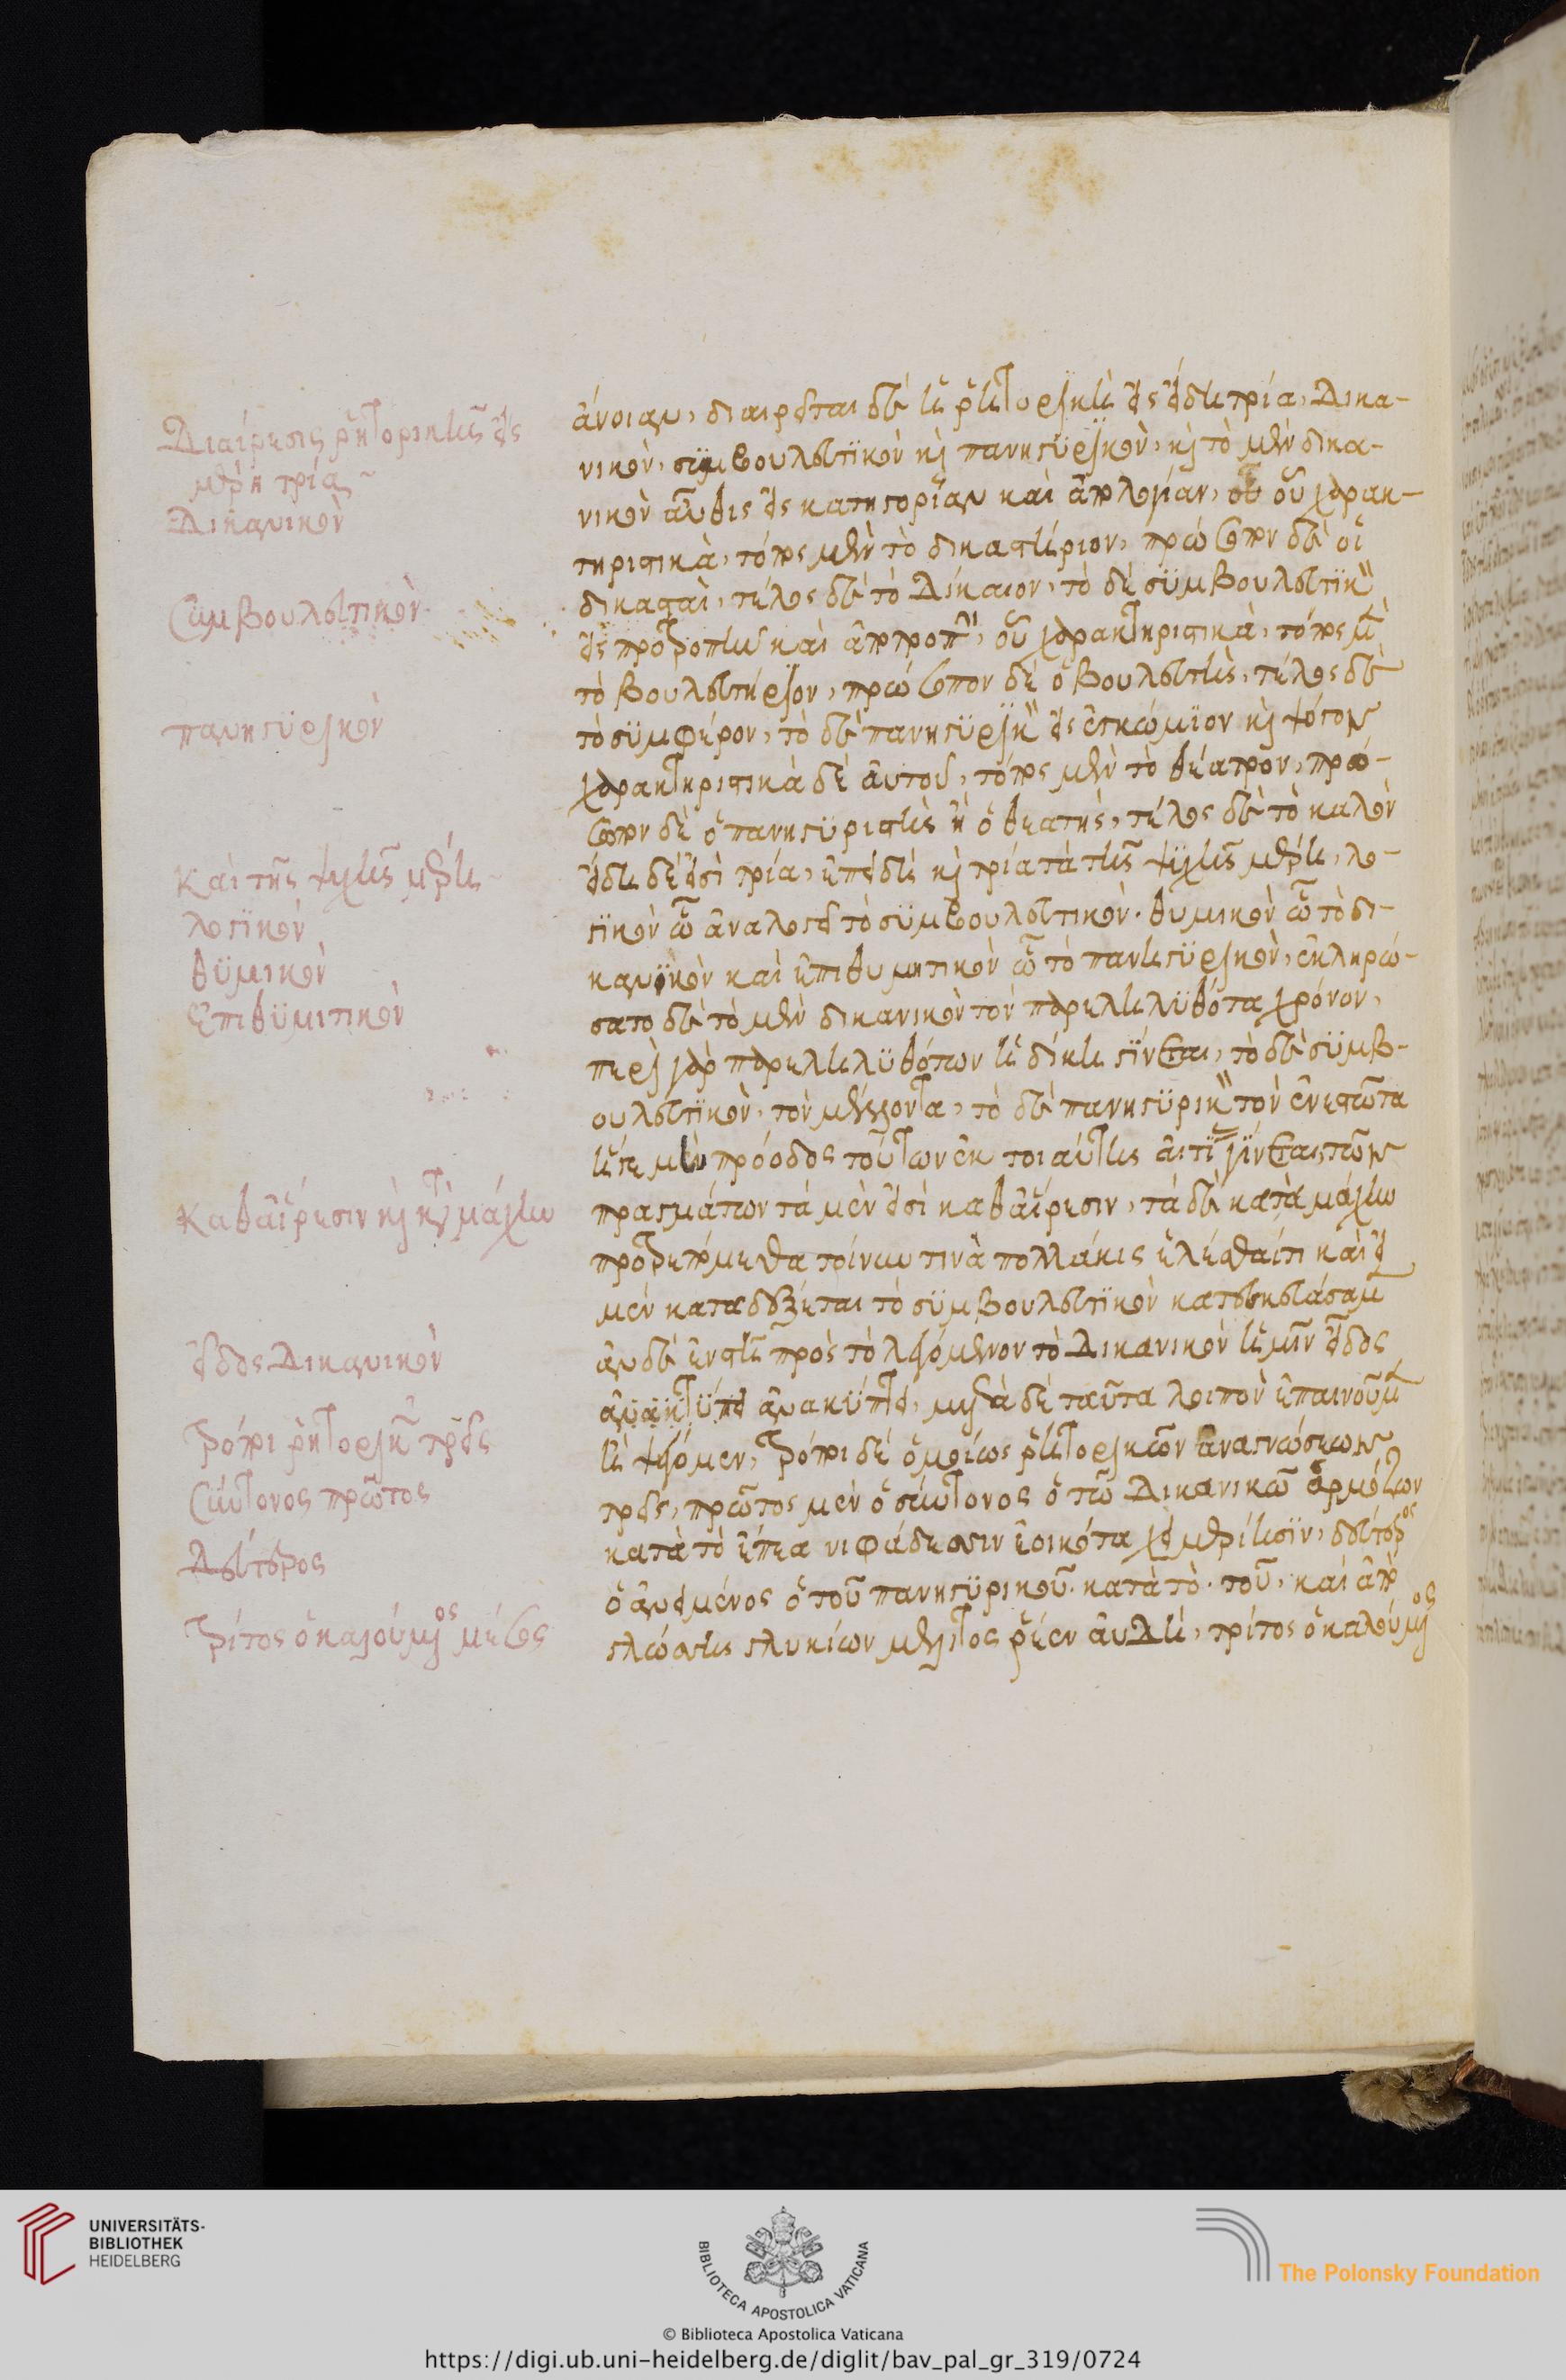 Διαίρεσις ῥητορικῆς εἰς
μέρη τρία
Δικανικὸν
Συμβουλευτικὸν
πανηγϋρικὸν
καὶ τῆς ψυχῆς μέρη
λογϊκὸν
θϋμικὸν
Ἐπιθϋμιτικὸν
καθαίρεσιν κỳ κατὰ μάχην
εἶδος Δικανικὸν
τρόποι ῥητορικῶν τρεῖς
Σύντονος πρῶτος
Δεύτερος
τρίτος ὁ καλούμενος μέσος
ἄνοιαν, διαιρεῖται δὲ ἡ ῥητορικὴ εἰς εἴδη τρία, Δικα-
νικὸν, συμβουλευτϊκὸν καὶ πανηγϋρικὸν, καὶ τὸ μὲν δικα-
νικὸν αὖθις εἰς κατηγορίαν καὶ ἀπολογίαν, οὗ χαρακ-
τηριστικὰ, τόπος μὲν τὸ δικαστήριον, πρόσωπον δὲ οἱ
δικασταὶ, τέλος δὲ τὸ Δίκαιον, τὸ δὲ σϋμβουλευτϊκὸν
εἰς προτροπὴν καὶ ἀποτροπὴν, οὗ χαρακτηριστικὰ, τόπος μὲν
τὸ βουλευτήριον, πρώσοπον δὲ ὁ βουλευτὴς, τέλος δὲ
τὸ σϋμφέρον, τὸ δὲ πανηγϋρϊκὸν εἰς ἐγκώμϊον καὶ ψόγον
χαρακτηριστικὰ δὲ αὐτοῦ, τόπος μὲν τὸ θέατρον, πρό-
σωπον δὲ ὁ πανηγϋριστὴς ἢ ὁ θεατὴς, τέλος δὲ τὸ καλὸν
εἴδη δὲ εἰσὶ τρία, ἐπειδὴ καὶ τρία τὰ τῆς ψϋχῆς μέρη, λο-
γϊκὸν ᾧ ἀναλογεῖ τὸ σϋμβουλευτικὸν. θυμικὸν ᾧ τὸ δι-
κανϊκὸν καὶ ἐπιθυμητικὸν ᾧ τὸ πανηγϋρικὸν, ἐκληρώ-
σατο δὲ τὸ μὲν δικανικὸν τὸν παρεληλϋθότα χρόνον,
περὶ γὰρ παρεληλϋθότων ἡ δίκη γίνεται, τὸ δὲ σϋμβ-
ουλευτϊκὸν, τὸν μέλλοντα, τὸ δὲ πανηγϋρικὸν τὸν ἐνεστῶτα
ἥτε μὲν πρόοδος τούτων ἐκ τοιαύτης αἰτίας γίνεται, τῶν
πραγμάτων τὰ μὲν εἰσὶ καθαίρεσιν, τὰ δὲ κατὰ μάχην
προτρεπόμεθα τοίνυν τινὰ πολλάκις ἑλέσθαί τι καὶ εἰ
μὲν καταδέξεται τὸ σϋμβουλευτϊκὸν κατεσκευάσαμεν
ἂν δὲ ἐνστῆ πρὸς τὸ λεγόμενον τὸ Δικανικὸν ἡμῖν εἶδος
ἀνακύπτει, μετὰ δὲ ταῦτα λοιπὸν ἐπαινοῦμεν
ἢ ψέγομεν, τρόποι δὲ ὁμοίως ῥητορικῶν ἀναγνώσεων
τρεῖς, πρῶτος μὲν ὁ σύντονος ὁ τῶ Δικανικῶ ἁρμόζων
κατὰ τὸ ἔπεα νιφάδεσσιν ἐοικότα χειμερίησϊν, δεύτερος
ὁ ἀνειμένος ὁ τοῦ πανηγϋρικοῦ. κατὰ τὸ. τοῦ, καὶ ἀπὸ
γλώσσης γλυκίων μέλιτος ῥέεν αὐδὴ, τρίτος ὁ καλούμενος
UNIVERSITÄTS-
BIBLIOTHEK
HEIDELBERG
BIBLIOTECA APOSTOLICA VATICANA
The Polonsky Foundation
© Biblioteca Apostolica Vaticana
https://digi.ub.uni-heidelberg.de/diglit/bav_pal_gr_319/0724